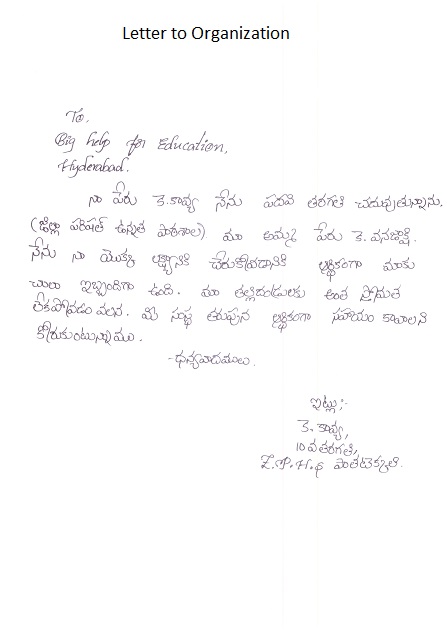 Letter to Organization
To,
Big help for Education,
Hyderabad.
నా పేరు కె.కావ్య నేను పదవ తరగతి చదువుతున్నాను.
(జిల్లా పరిషత్ ఉన్నత పాఠశాల) మా అమ్మ పేరు కె. వనజాక్షి.
నేను నా యొక్క లక్ష్యానికి చేరుకోవడానికి ఆర్థికంగా మాకు
చాలా ఇబ్బందిగా ఉంది. మా తల్లిదండ్రులకు అంత స్తోమత
లేకపోవడం వలన. మీ సంస్థ తరుపున ఆర్థికంగా సహాయం కావాలని
కోరుకుంటున్నాము.
-ధన్యవాదములు.
ఇట్లు:-
కె. కావ్య,
10 వ తరగతి,
Z.P.H.S